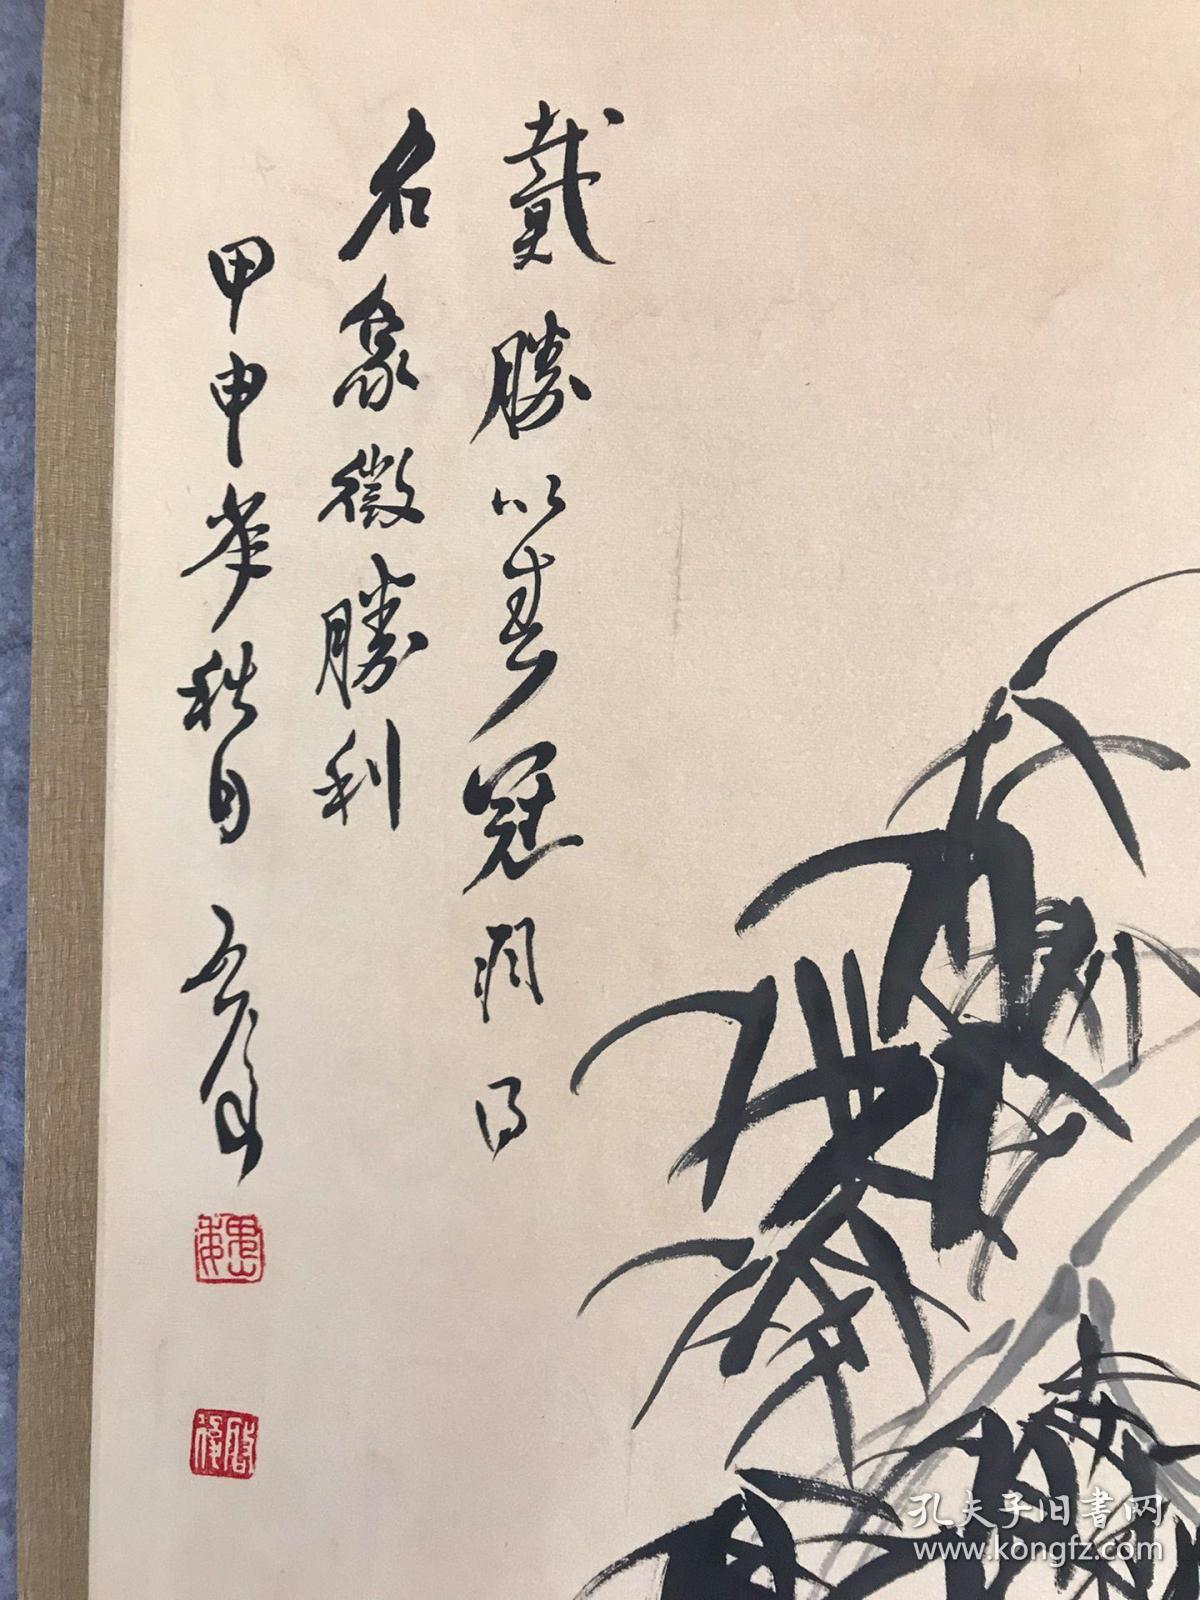 戴勝以其冠羽得
名象徵勝利
甲申年秋月
孔夫子旧書网
www.kongfz.com